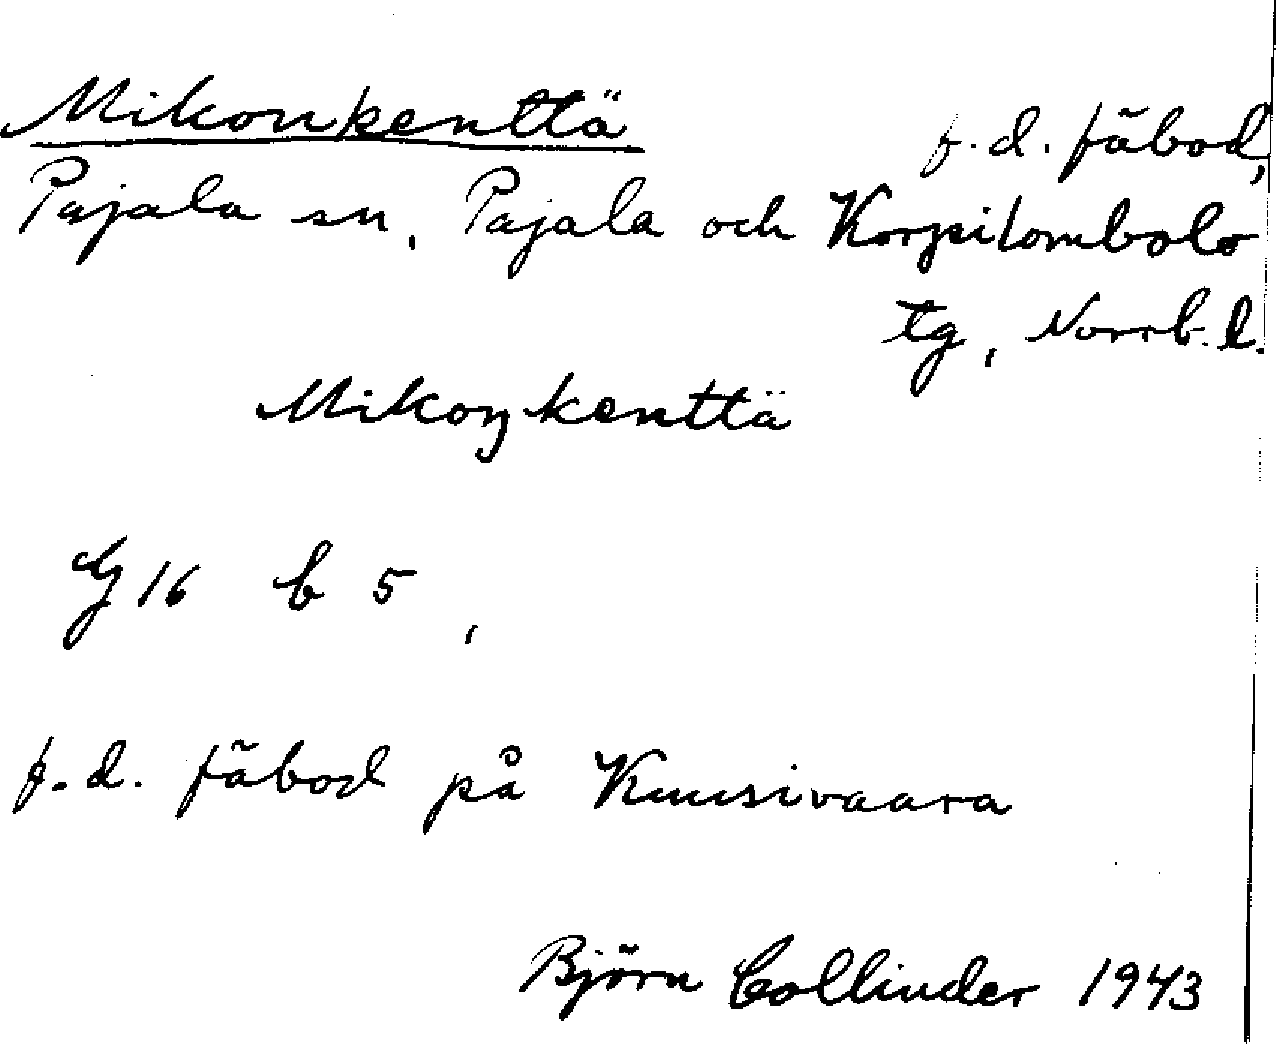 Mikonkenttä f.d. fäbod,
Pajala sn, Pajala och Korpilombolo
tg, Norrb. l.
Mikoŋkenttä
G 16 b 5,
f.d. fäbod på Kuusivaara
Björn Collinder 1943